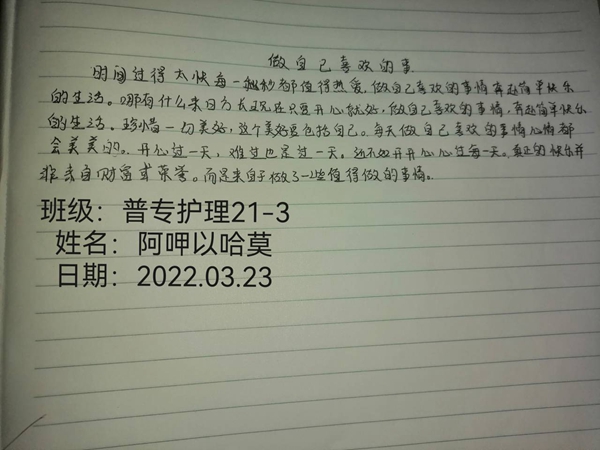 做自己喜欢的事
时间过得太快每一秒都值得热爱,做自己喜欢的事情奔赴简单快乐
的生活。哪有什么来日方长现在只要开心就好,做自己喜欢的事情,奔赴简单快乐
的生活。珍惜一切美好,这个美好要包括自己。每天做自己喜欢的事情心情都
会美美的。开心过一天,难过也是过一天。还不如开开心心过每一天。真正的快乐并
非来自财富或荣誉。而是来自于做了一些值得做的事情。
班级:普专护理21-3
姓名:阿呷以哈莫
日期:2022.03.23